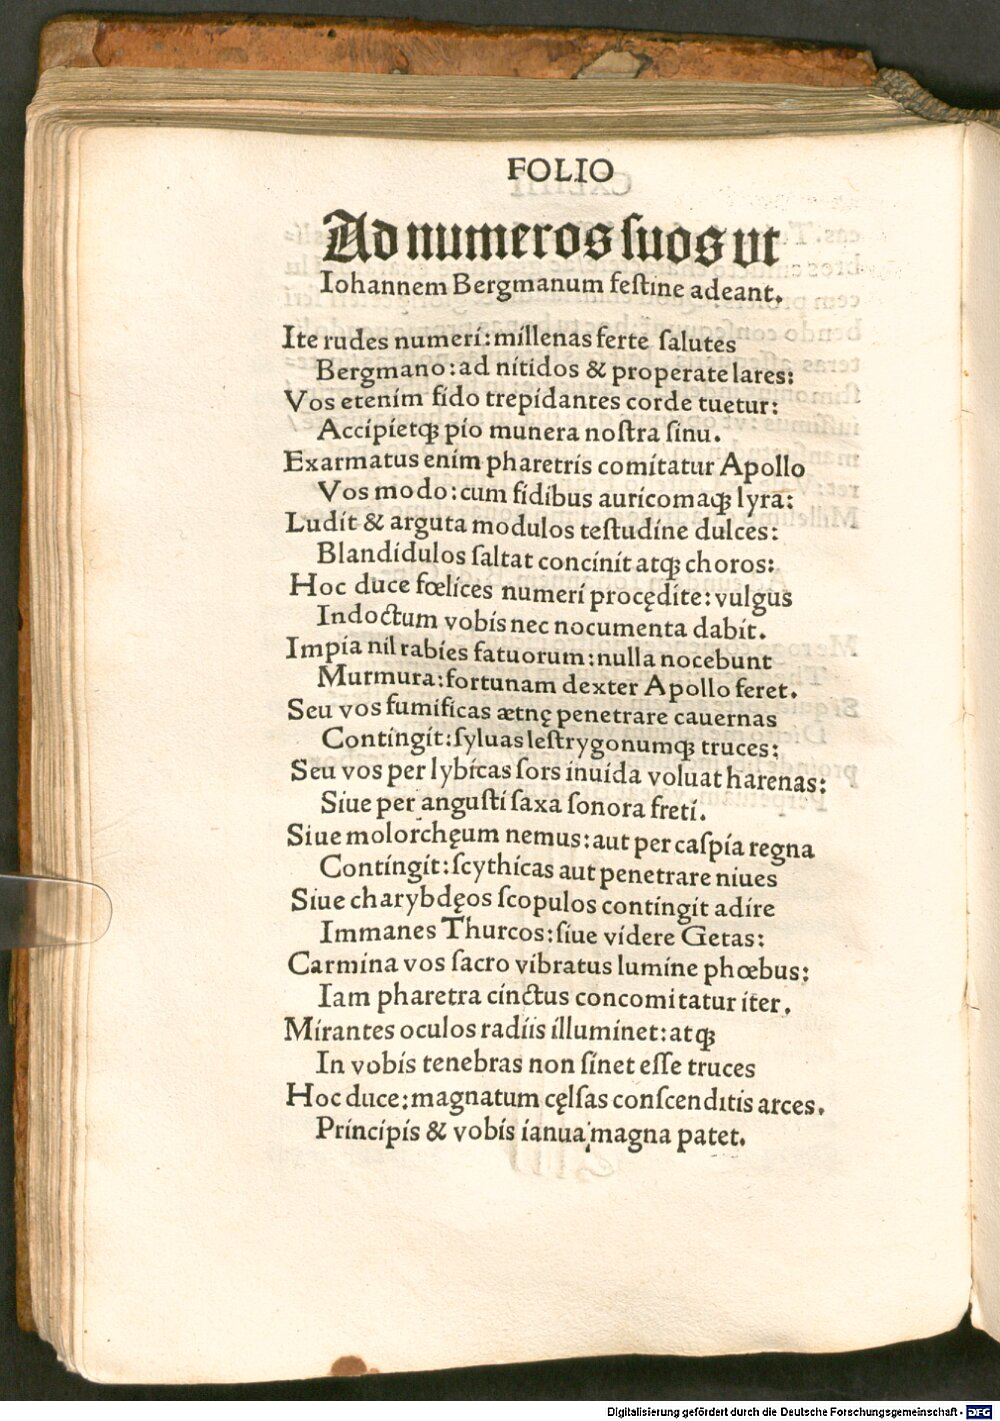 FOLIO
Ad numeros ſuos ut
Iohannem Bergmanum feſtine adeant.
Ite rudes numeri: millenas ferte ſalutes
Bergmano: ad nitidos & properate lares:
Vos etenim fido trepidantes corde tuetur:
Accipietqꝫ pio munera noſtra ſinu.
Exarmatus enim pharetris comitatur Apollo
Vos modo: cum fidibus auricomaqꝫ lyra:
Ludit & arguta modulos teſtudine dulces:
Blandidulos ſaltat concinit atqꝫ choros:
Hoc duce fœlices numeri procędite: vulgus
Indoctum vobis nec nocumenta dabit.
Impia nil rabies fatuorum: nulla nocebunt
Murmura: fortunam dexter Apollo feret.
Seu vos fumificas ætnę penetrare cauernas
Contingit: ſyluas leſtrygonumqꝫ truces:
Seu vos per lybicas ſors inuida voluat harenas:
Siue per anguſti ſaxa ſonora freti.
Siue molorchęum nemus: aut per caſpia regna
Contingit: ſcythicas aut penetrare niues
Siue charybdęos ſcopulos contingit adire
Immanes Thurcos: ſiue videre Getas:
Carmina vos ſacro vibratus lumine phœbus:
Iam pharetra cinctus concomitatur iter.
Mirantes oculos radiis illuminet: atqꝫ
In vobis tenebras non ſinet eſſe truces
Hoc duce: magnatum cęlſas conſcenditis arces.
Principis & vobis ianua magna patet.
Digitalisierung gefördert durch die Deutsche Forschungsgemeinschaft - DFG